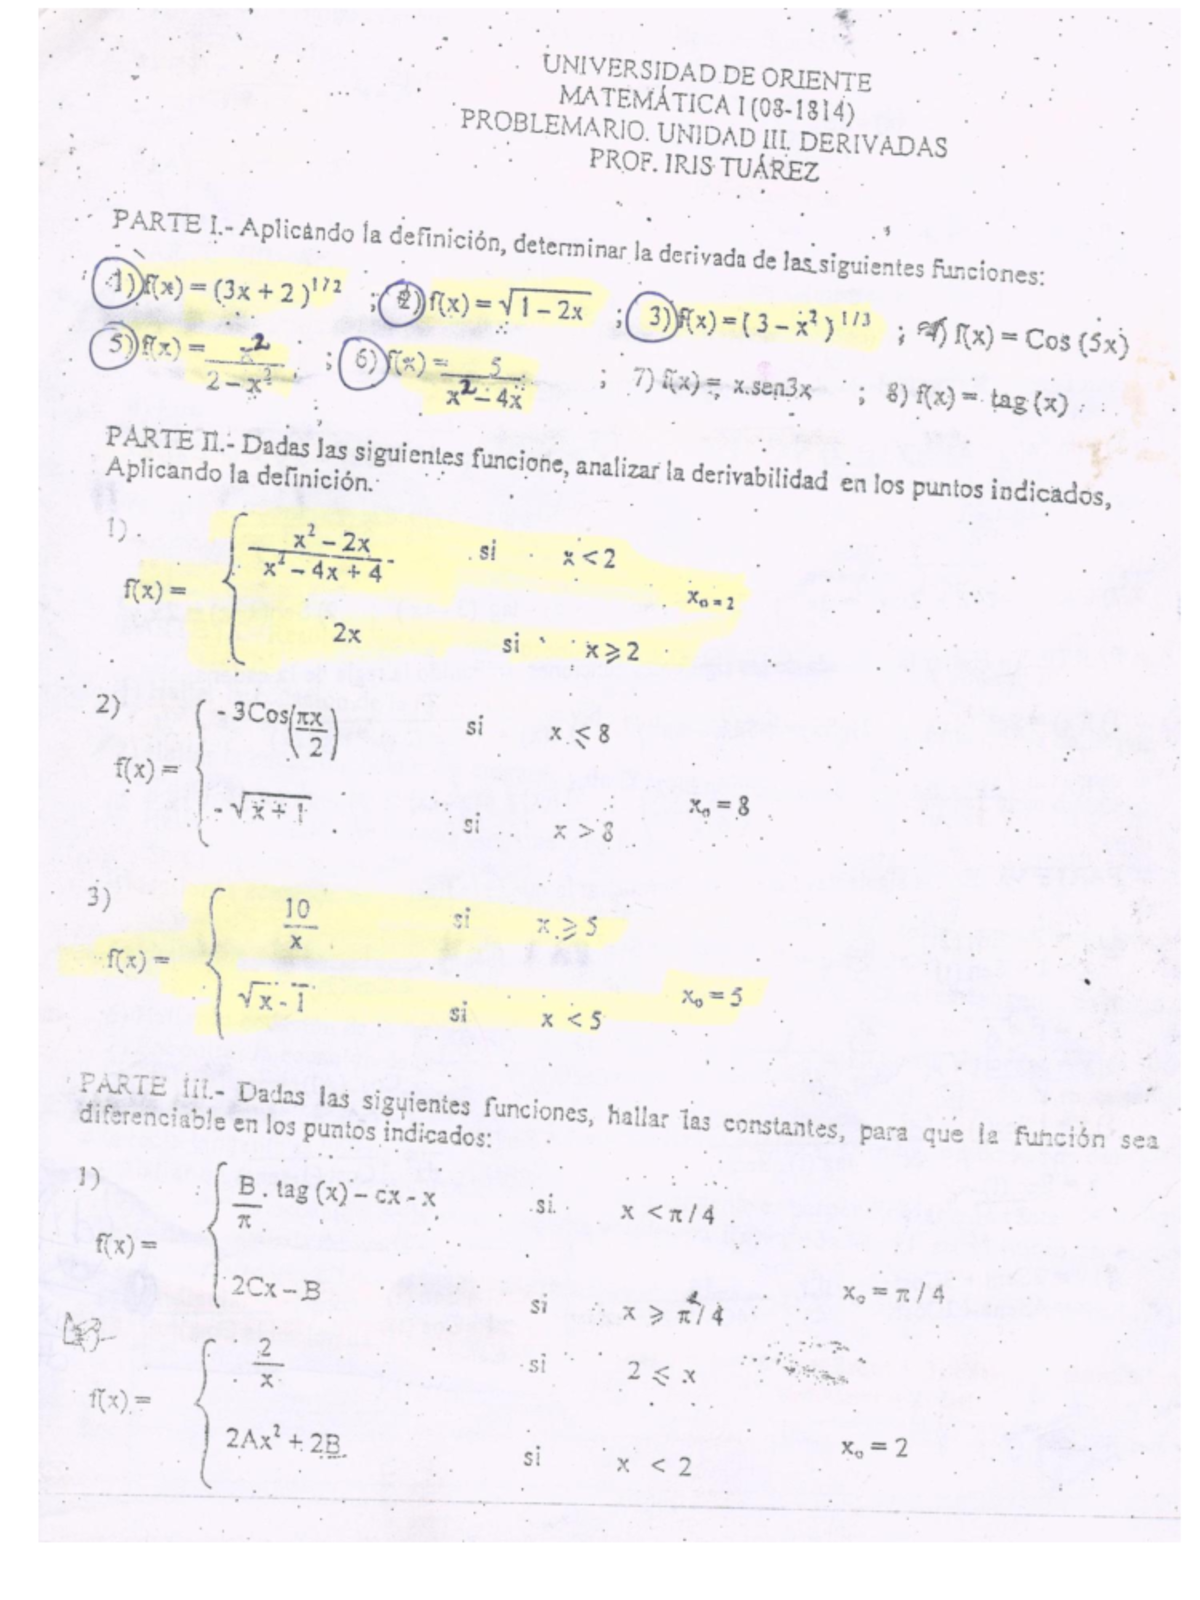 UNIVERSIDAD DE ORIENTE
MATEMÁTICA I (08-1814)
PROBLEMARIO. UNIDAD III. DERIVADAS
PROF. IRIS TUÁREZ
PARTE I.- Aplicando la definición, determinar la derivada de las siguientes funciones:
1) f(x) = (3x + 2)^{1/2} ; 2) f(x) = √(1 – 2x) ; 3) f(x) = (3 – x²)^{1/3} ; 4) f(x) = Cos (5x)
5) f(x) = x² / (2 – x³) ; 6) f(x) = 5 / (x² – 4x) ; 7) f(x) = x.sen3x ; 8) f(x) = tag (x)
PARTE II.- Dadas las siguientes funcione, analizar la derivabilidad en los puntos indicados,
Aplicando la definición.
1)
(x² – 2x) / (x² – 4x + 4) si x < 2
f(x) = x₀ = 2
2x si x ⩾ 2
2)
- 3Cos(πx/2) si x ⩽ 8
f(x) =
- √(x + 1) si x > 8 x₀ = 8
3)
10/x si x ⩾ 5
f(x) =
√(x - 1) si x < 5 x₀ = 5
PARTE III.- Dadas las siguientes funciones, hallar las constantes, para que la función sea
diferenciable en los puntos indicados:
1)
B/π . tag (x) – cx - x si x < π / 4
f(x) =
2Cx – B si x ⩾ π / 4 x₀ = π / 4
2/x si 2 ⩽ x
f(x) =
2Ax² + 2B si x < 2 x₀ = 2